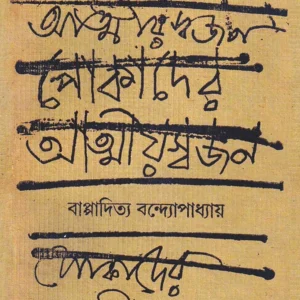 আত্মীয়স্বজন
পোকাদের
আত্মীয়স্বজন
বাপ্পাদিত্য বন্দ্যোপাধ্যায়
পোকাদের